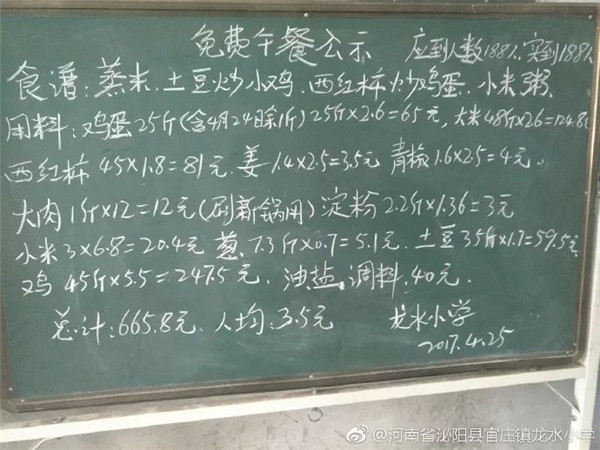 免费午餐公示 应到人数188人,实到188人
食谱:蒸米.土豆炒小鸡.西红柿炒鸡蛋.小米粥.
用料:鸡蛋25斤(含4月24除1斤)25斤×2.6=65元,大米48斤×2.6=124.8元
西红柿 45×1.8=81元.姜1.4×2.5=3.5元 青椒1.6×2.5=4元.
大肉1斤×12=12元(刷新锅用)淀粉2.2斤×1.36=3元
小米3×6.8=20.4元 葱.7.3斤×0.7=5.1元.土豆35斤×1.7=59.5元
鸡45斤×5.5=247.5元.油盐.调料.40元.
总计:665.8元.人均:3.5元 龙水小学
2017.4.25
@河南省泌阳县官庄镇龙水小学